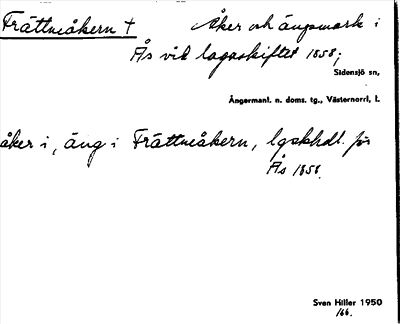 Frättmåkern † Åker och ängsmark i
Ås vid lagaskiftet 1858;
Sidensjö sn,
Ångermanl. n. doms. tg., Västernorrl. l.
åker i, äng i Frättmåkern, lgskhdl. för
Ås 1858.
Sven Hiller 1950
166.